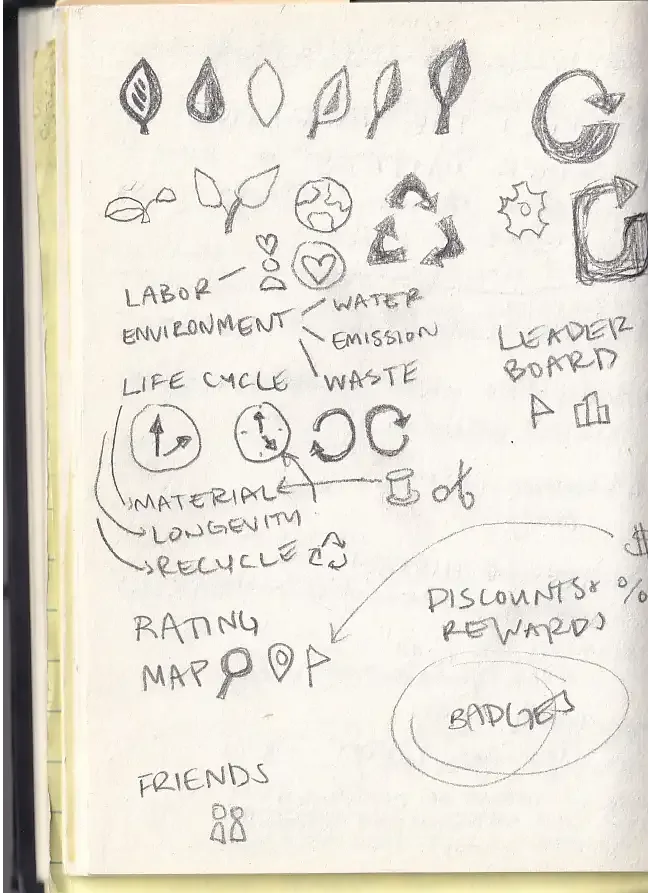 LABOR
ENVIRONMENT
WATER
EMISSION
WASTE
LIFE CYCLE
LEADER
BOARD
MATERIAL
LONGEVITY
RECYCLE
RATING
MAP
$
DISCOUNTS & %
REWARDS
BADGES
FRIENDS